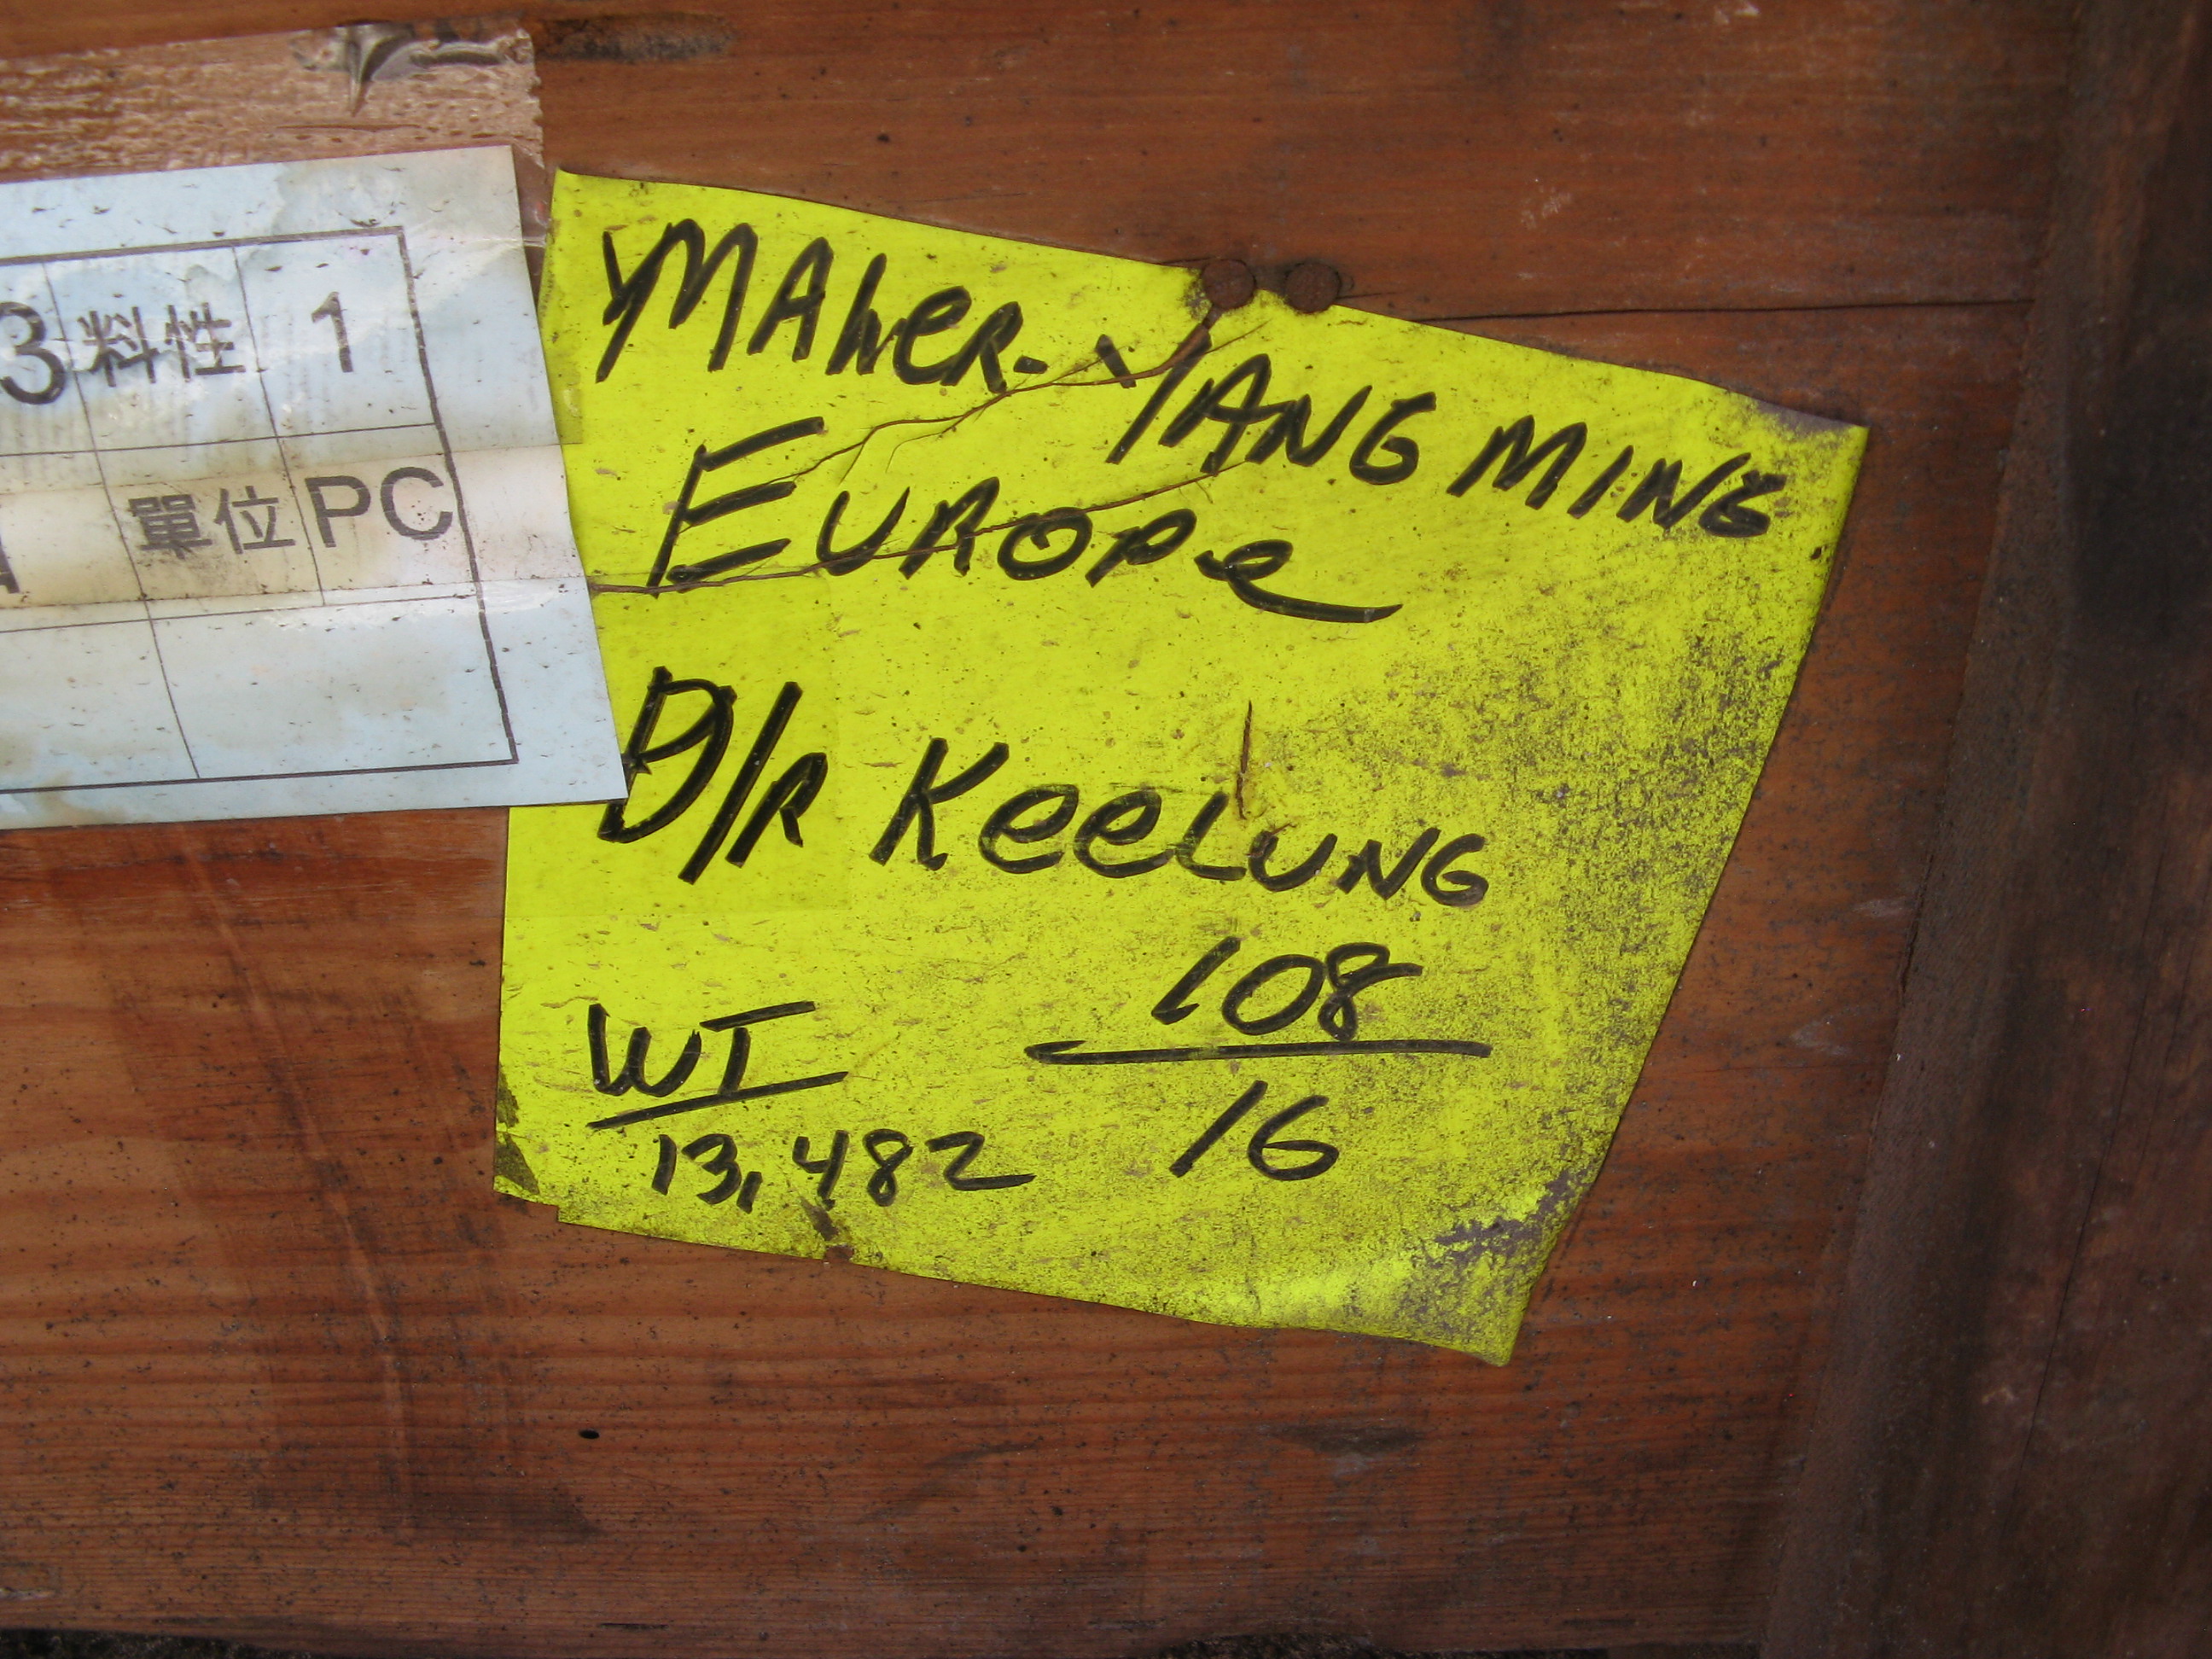 3 料性 1
單位 PC
MAher-YANG MING
EuRoPe
D/R KeeLUNG
108
WT
16
13,482